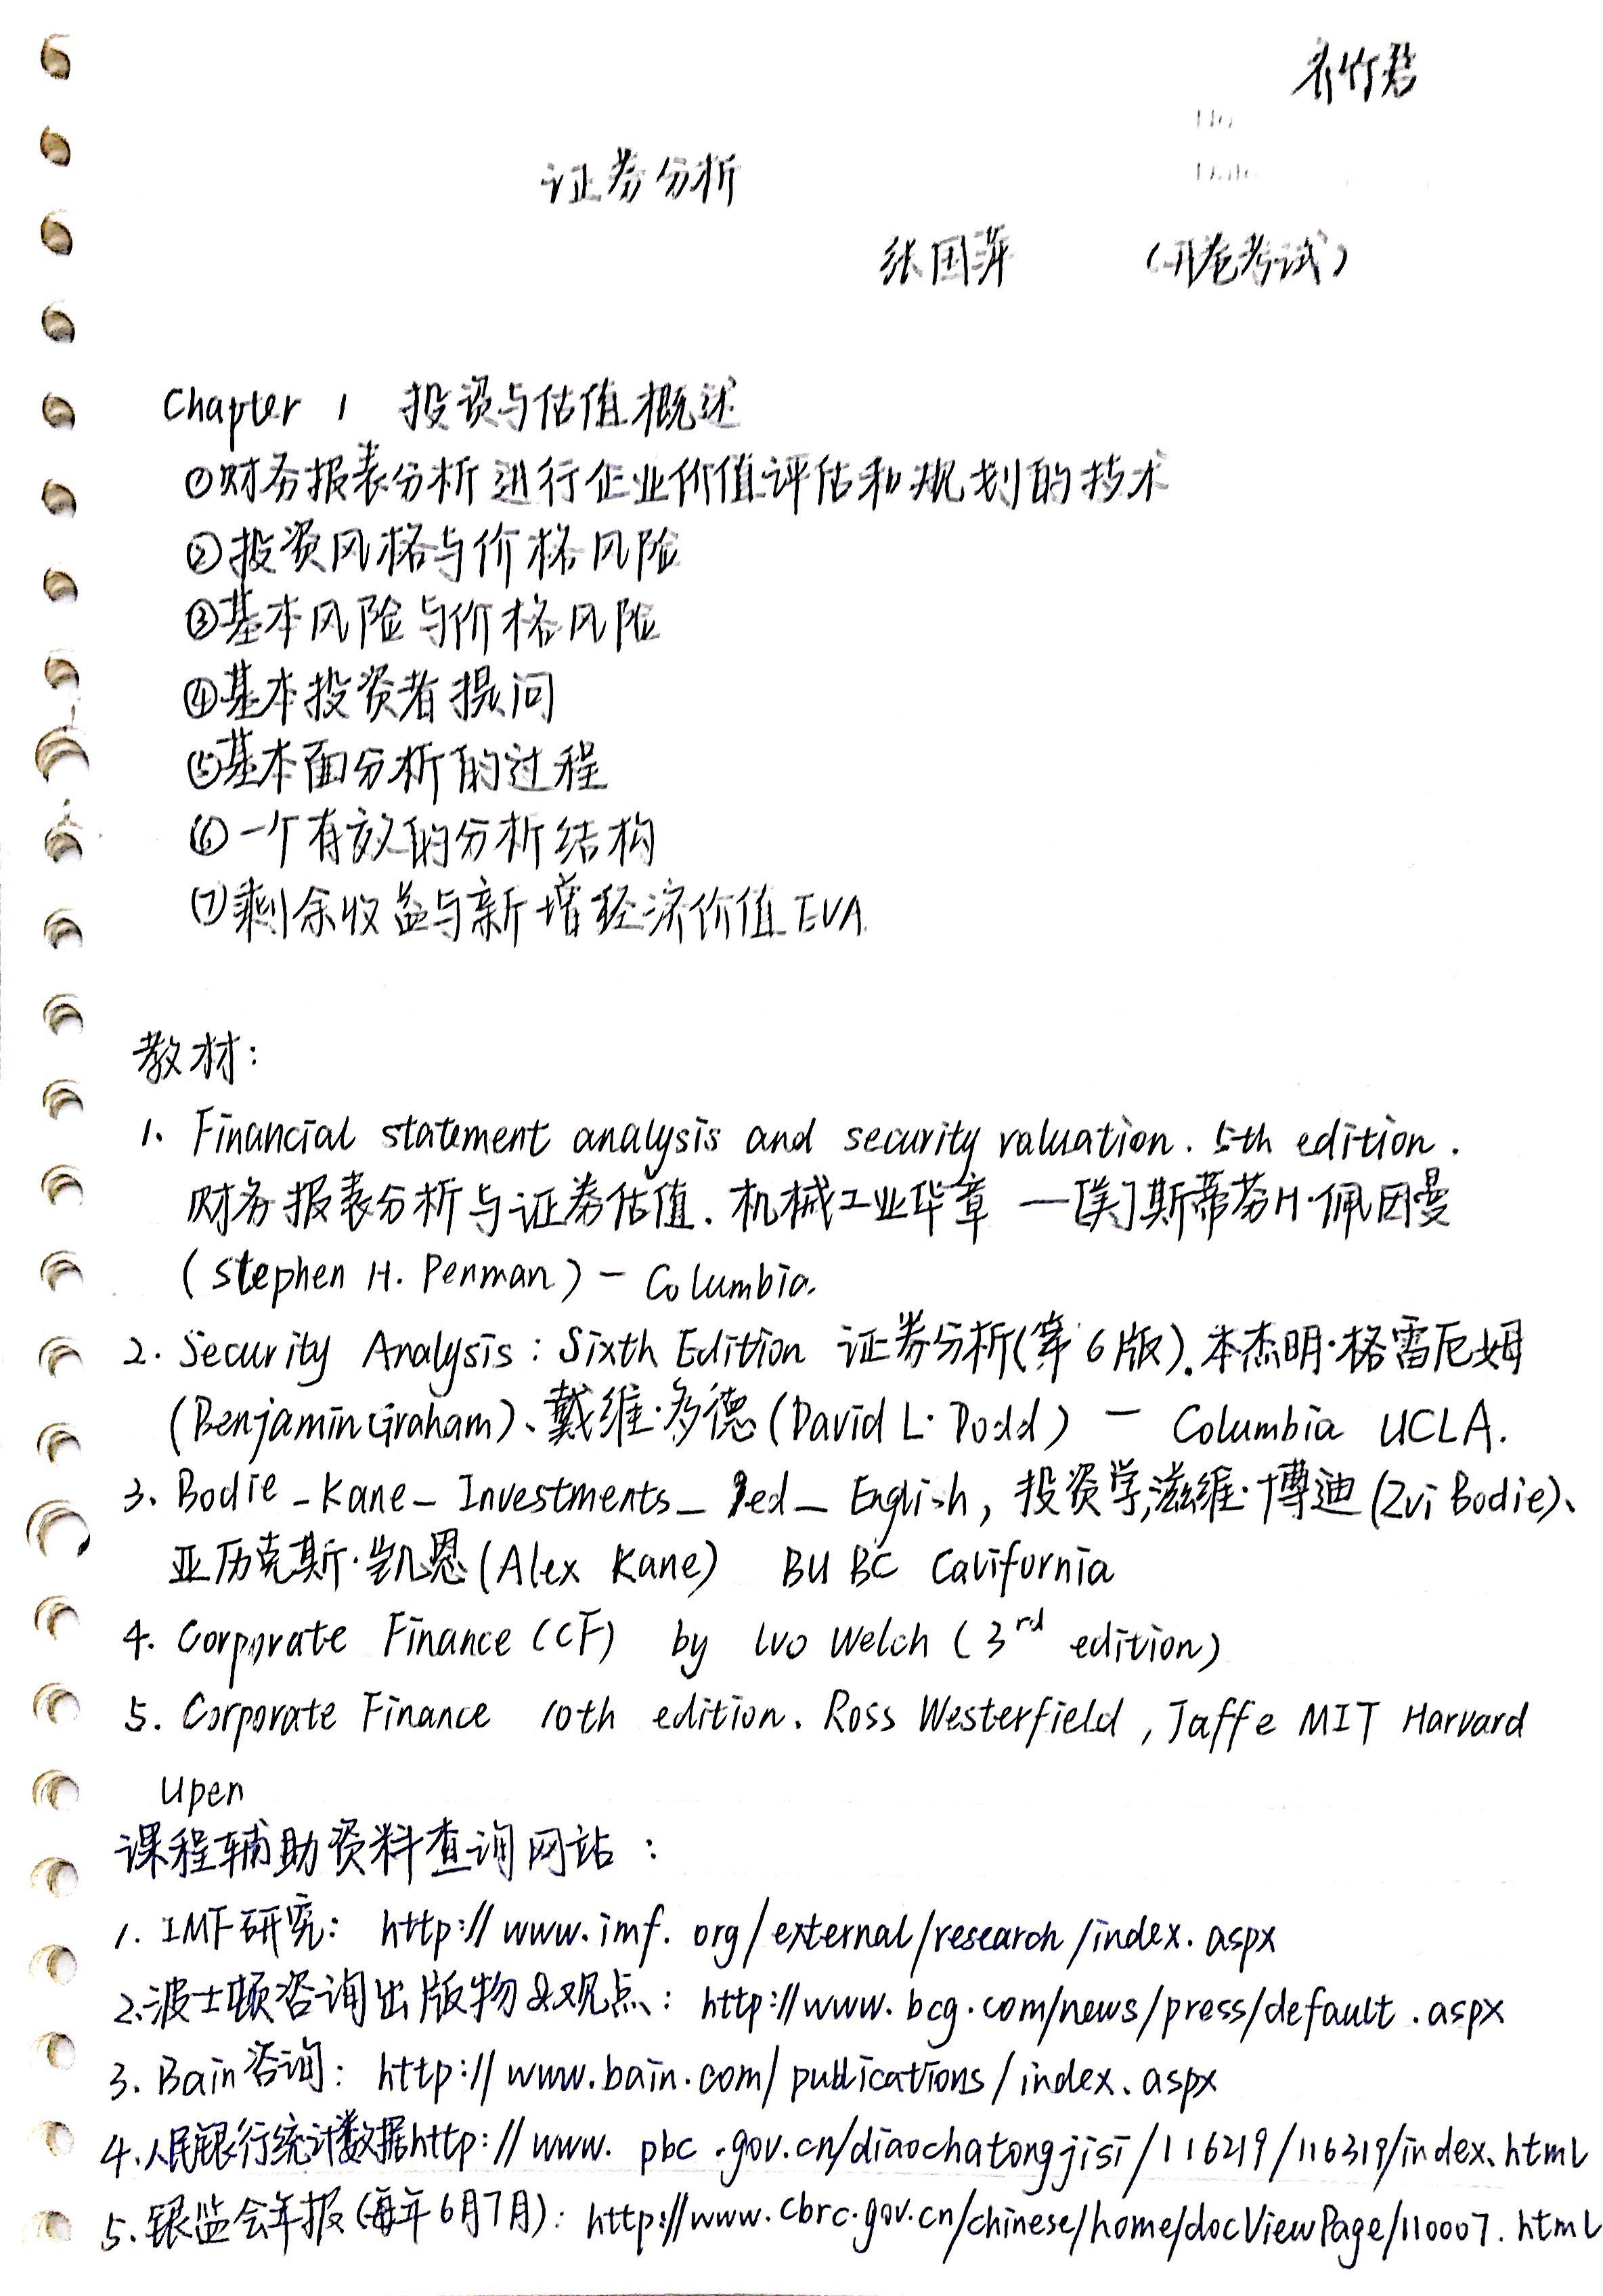 证券分析
张国萍 (开卷考试)
Chapter 1 投资与估值概述
①财务报表分析进行企业价值评估和规划的技术
②投资风格与价格风险
③基本风险与价格风险
④基本投资者提问
⑤基本面分析的过程
⑥一个有效的分析结构
⑦剩余收益与新增经济价值EVA
教材:
1. Financial statement analysis and security valuation. 5th edition.
财务报表分析与证券估值. 机械工业华章 —[美]斯蒂芬H·佩因曼
(Stephen H. Penman) — Columbia.
2. Security Analysis: Sixth Edition 证券分析(第6版).本杰明·格雷厄姆
(Benjamin Graham)、戴维·多德(David L. Dodd) — Columbia UCLA.
3. Bodie_Kane_Investments_9ed_English, 投资学,滋维·博迪(Zvi Bodie)、
亚历克斯·凯恩(Alex Kane) BU BC California
4. Corporate Finance (CF) by Ivo Welch (3rd edition)
5. Corporate Finance 10th edition. Ross Westerfield, Jaffe MIT Harvard
Upen
课程辅助资料查询网站:
1. IMF研究: http://www.imf.org/external/research/index.aspx
2.波士顿咨询出版物&观点: http://www.bcg.com/news/press/default.aspx
3. Bain咨询: http://www.bain.com/publications/index.aspx
4.人民银行统计数据http://www.pbc.gov.cn/diaochatongjisi/116219/116319/index.html
5.银监会年报(每年6月7月): http://www.cbrc.gov.cn/chinese/home/docViewPage/110007.html